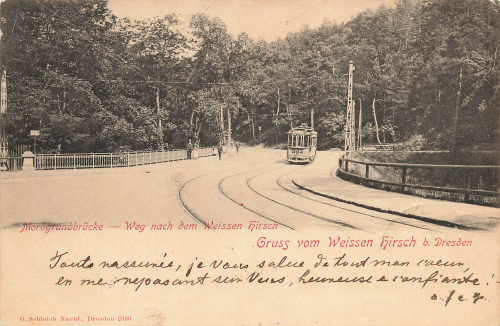 Mordgrundbrücke — Weg nach dem Weissen Hirsch
Gruss vom Weissen Hirsch b. Dresden
Toute rassurée, je vous salue de tout mon cœur,
en me reposant sur Vous, heureuse e confiante!
O. Schleich Nachf., Dresden 2100